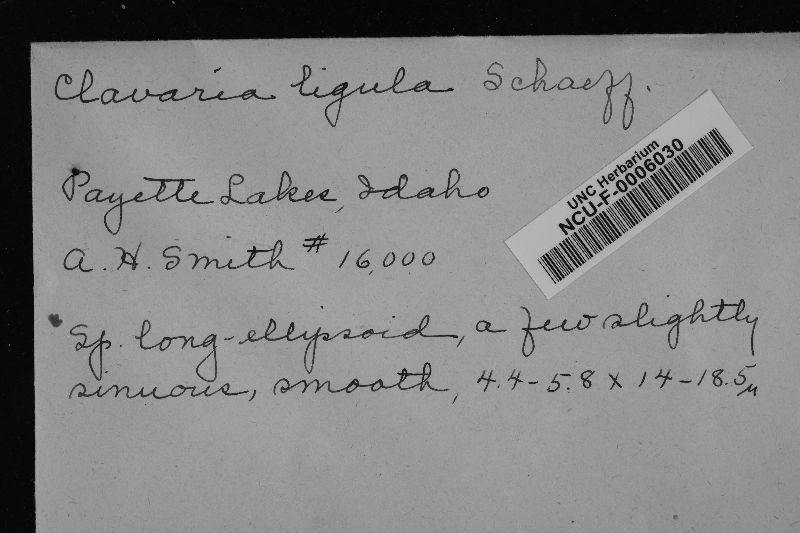 Clavaria ligula Schaeff.
UNC Herbarium
NCU-F-0006030
Payette Lakes, Idaho
A. H. Smith # 16,000
Sp. long-ellipsoid, a few slightly
sinuous, smooth, 4.4-5.8 x 14-18.5 µ